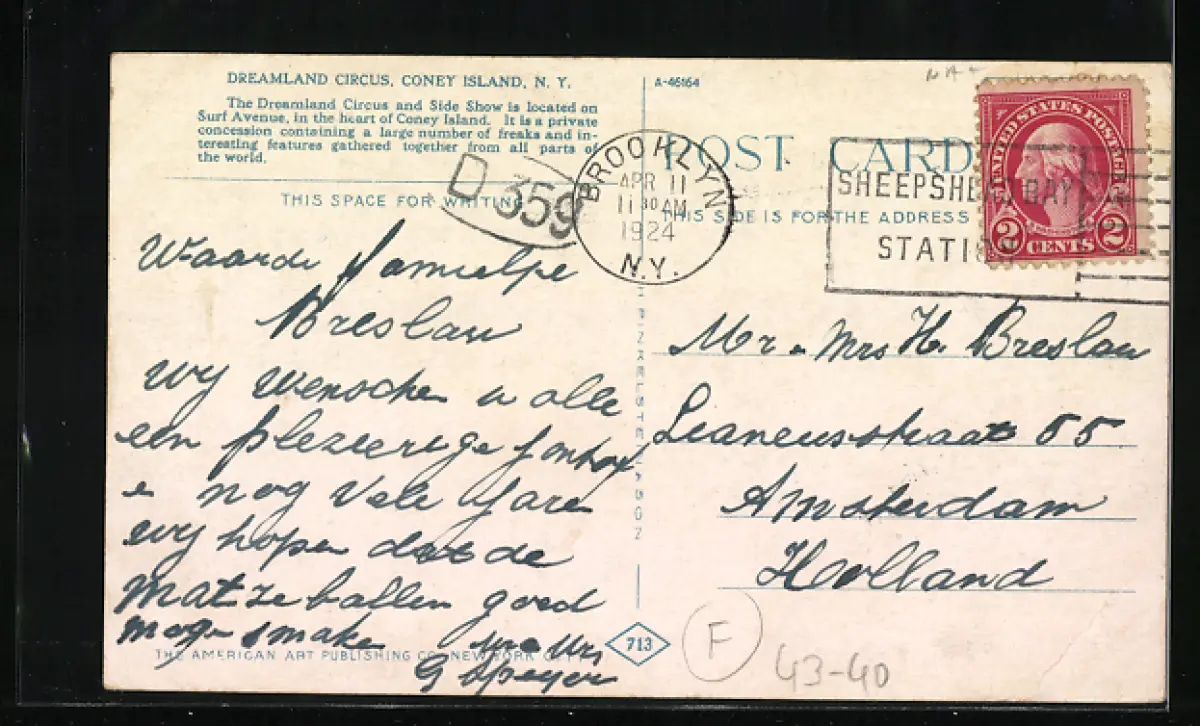 DREAMLAND CIRCUS, CONEY ISLAND, N. Y.
The Dreamland Circus and Side Show is located on
Surf Avenue, in the heart of Coney Island. It is a private
concession containing a large number of freaks and in-
teresting features gathered together from all parts of
the world.
THIS SPACE FOR WRITING
A-46164
POST CARD
THIS SIDE IS FOR THE ADDRESS
D 359
BROOKLYN
APR 11
11 30 AM
1924
N.Y.
SHEEPSHEAD BAY
STATION
UNITED STATES POSTAGE
2 CENTS 2
Waarde
Breslau
wy wensche u alle
een plezierige
e nog vele jaren
wy hopen dat de
Matzeballen goed
moge smake
Mr e Mrs
G Speyer
Mr. Mrs H. Breslau
55
Amsterdam
Holland
THE AMERICAN ART PUBLISHING CO. NEW YORK CITY
713
F
43-40